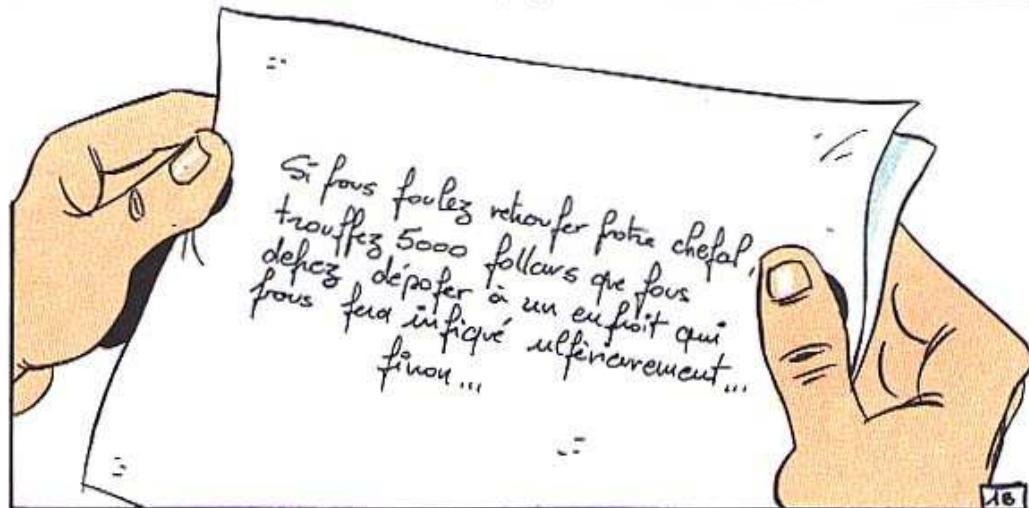 Si fous foulez retroufer fotre chefal,
trouffez 5000 follars que fous
defez dépofer à un enfroit qui
fous fera infiqué ulférieurement...
finon...
18